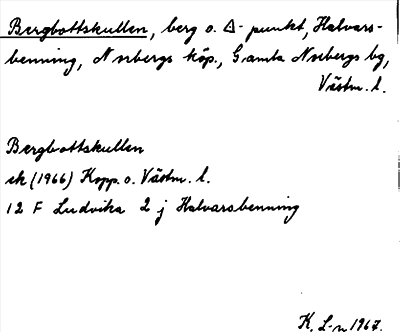 Bergbottskullen, berg o. Δ-punkt, Halvars-
benning, Norbergs köp., Gamla Norbergs bg,
Västm. l.
Bergbottskullen
ek (1966) Kopp. o. Västm. l.
12 F Ludvika 2 j Halvarsbenning
K. L-n 1967.